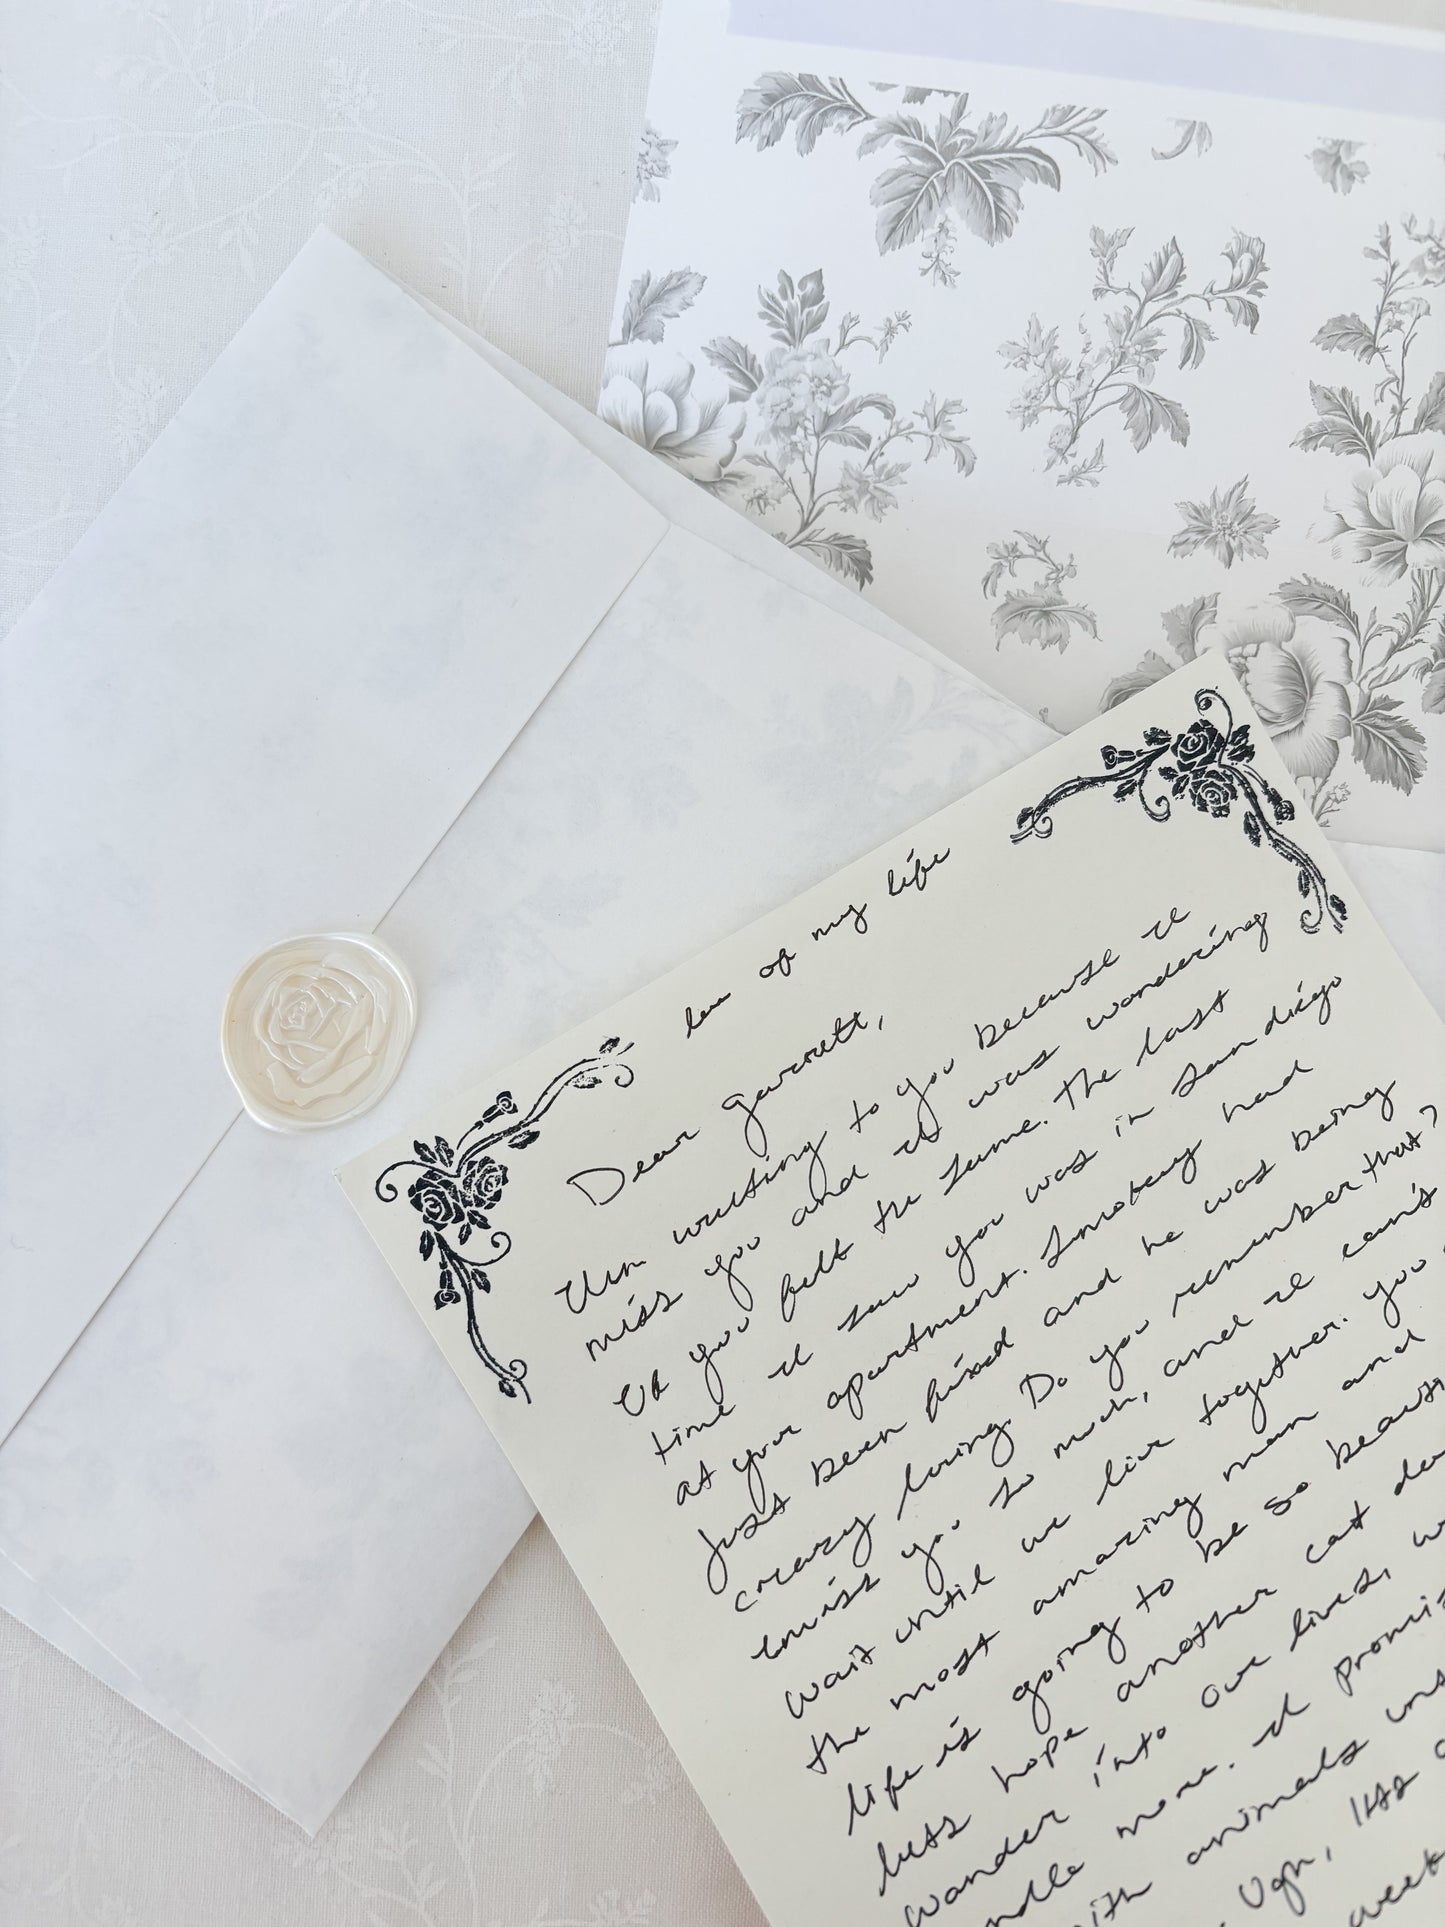 love of my life
Dear Garrett,
I'm writing to you because I
miss you and I was wondering
if you felt the same. The last
time I saw you was in San Diego
at your apartment. Smokey had
just been fixed and he was being
crazy loving. Do you remember that?
I miss you so much, and I can't
wait until we live together. You
the most amazing man and
life is going to be so
lets hope another cat
wander into our lives,
more. I
with animals
Ugh, its